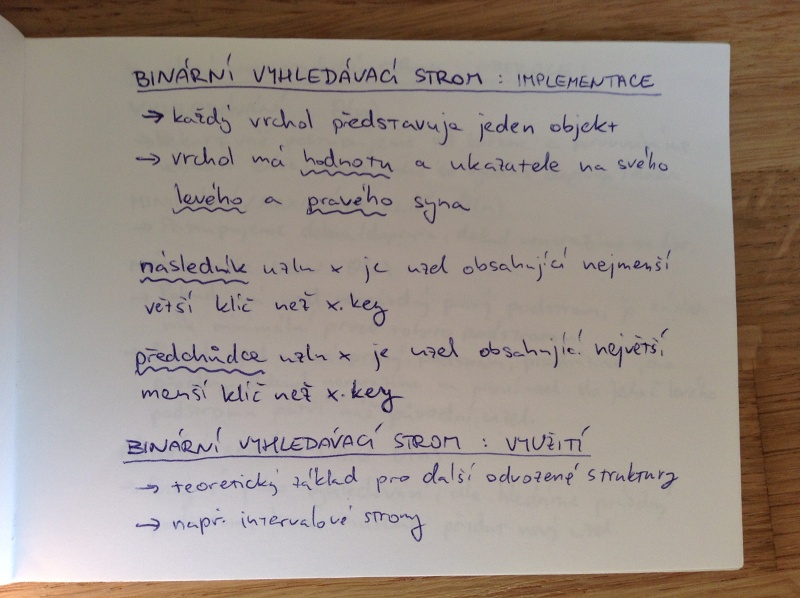 BINÁRNÍ VYHLEDÁVACÍ STROM : IMPLEMENTACE
→ každý vrchol představuje jeden objekt
→ vrchol má hodnotu a ukazatele na svého
levého a pravého syna
následník uzlu x je uzel obsahující nejmenší
větší klíč než x.key
předchůdce uzlu x je uzel obsahující největší
menší klíč než x.key
BINÁRNÍ VYHLEDÁVACÍ STROM : VYUŽITÍ
→ teoretický základ pro další odvozené struktury
→ např. intervalové stromy